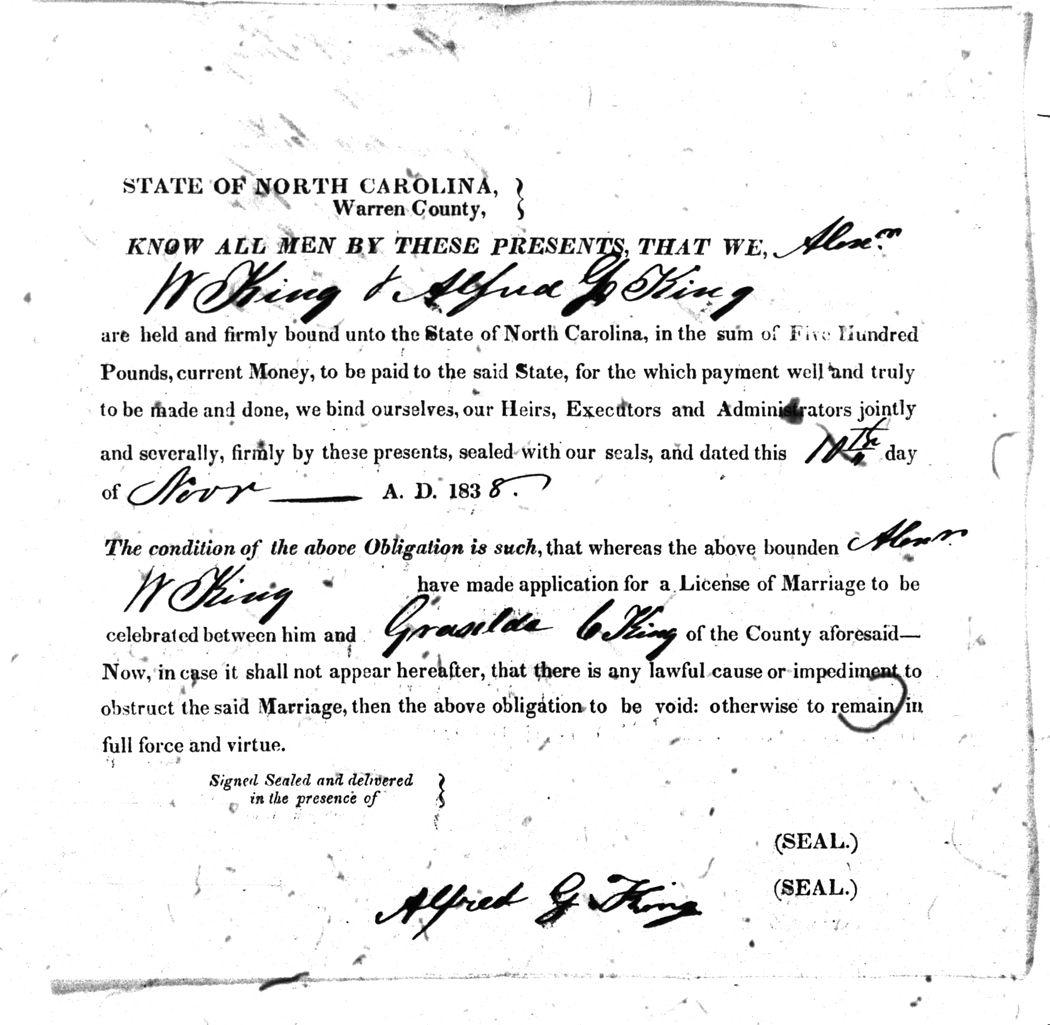 STATE OF NORTH CAROLINA,
Warren County,
KNOW ALL MEN BY THESE PRESENTS, THAT WE, Alexr.
W King & Alfred G King
are held and firmly bound unto the State of North Carolina, in the sum of Five Hundred
Pounds, current Money, to be paid to the said State, for the which payment well and truly
to be made and done, we bind ourselves, our Heirs, Executors and Administrators jointly
and severally, firmly by these presents, sealed with our seals, and dated this day
of Novr A. D. 1838.
The condition of the above Obligation is such, that whereas the above bounden Alexr.
W King have made application for a License of Marriage to be
celebrated between him and C King of the County aforesaid—
Now, in case it shall not appear hereafter, that there is any lawful cause or impediment to
obstruct the said Marriage, then the above obligation to be void: otherwise to remain in
full force and virtue.
Signed Sealed and delivered
in the presence of
(SEAL.)
Alfred G King (SEAL.)